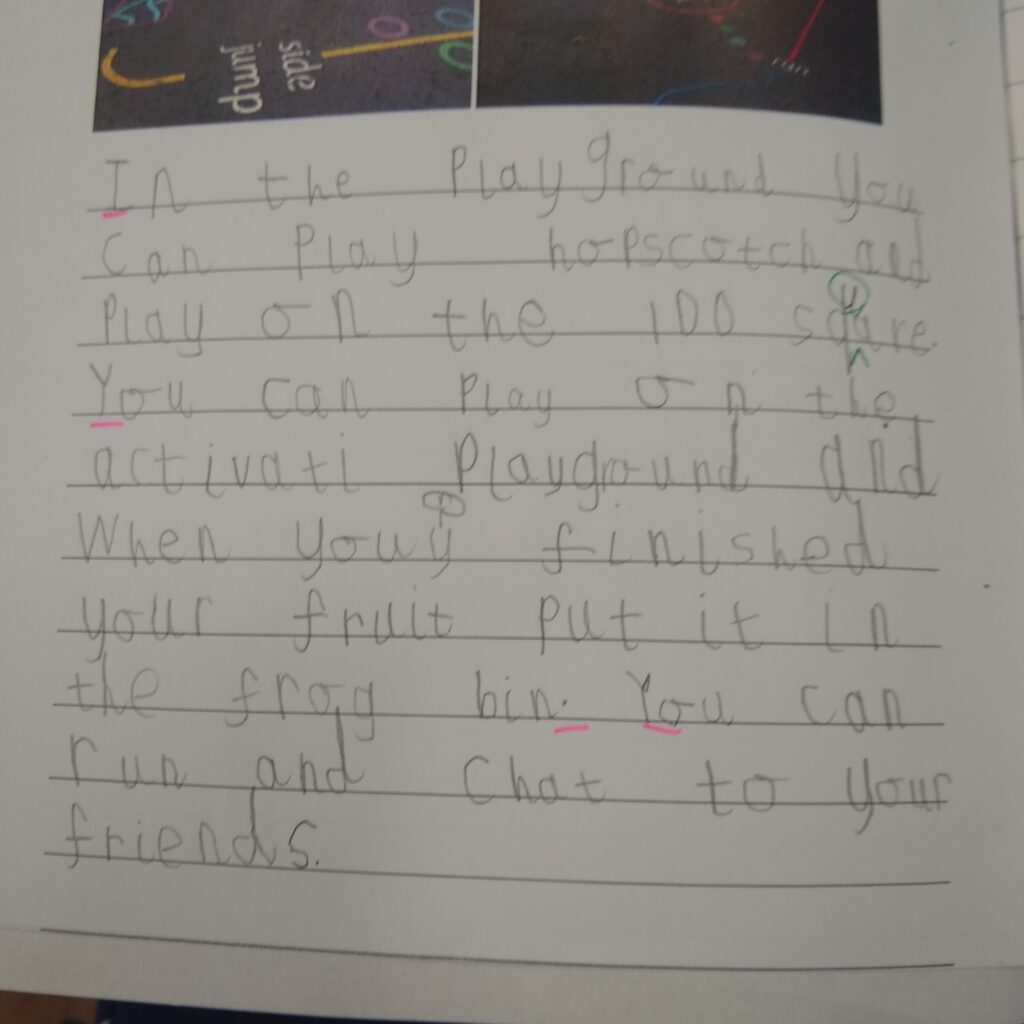 side
jump
In the Playground you
can Play hopscotch and
Play on the 100 square.
You can Play on the
activati Playground and
When youy finished
your fruit put it in
the frog bin. You can
run and Chat to your
friends.